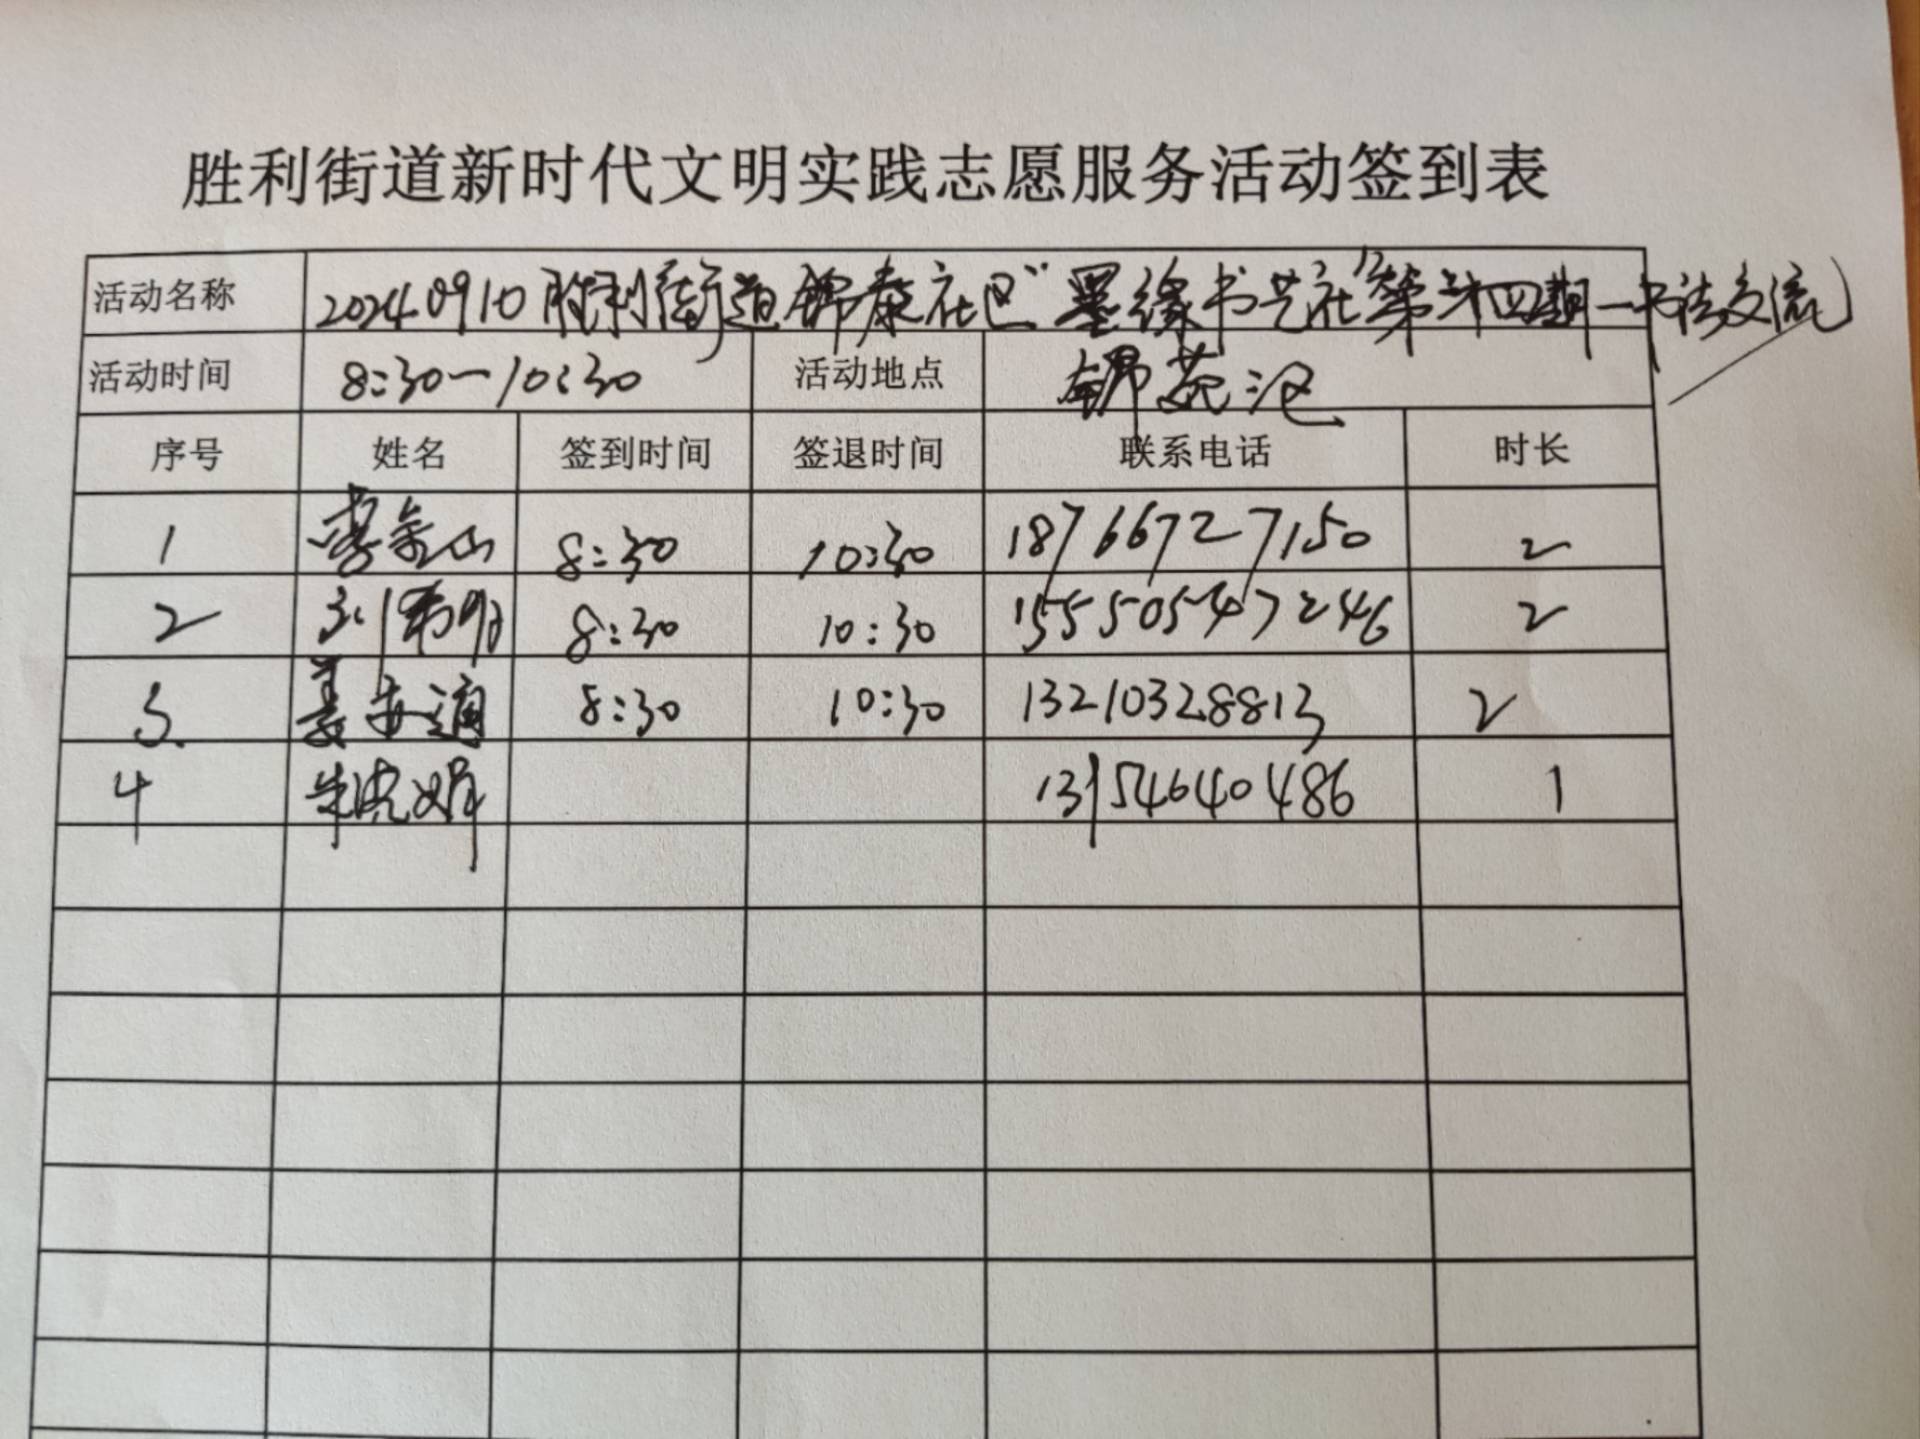 胜利街道新时代文明实践志愿服务活动签到表
活动名称 20240910胜利街道锦康社区"墨缘书艺社"第廿四期一书法交流
活动时间 8:30-10:30 活动地点 锦苑
序号 姓名 签到时间 签退时间 联系电话 时长
1 李金山 8:30 10:30 18766727150 2
2 刘 8:30 10:30 15550547246 2
3. 姜通 8:30 10:30 13210328813 2
4 朱娟 13154640486 1